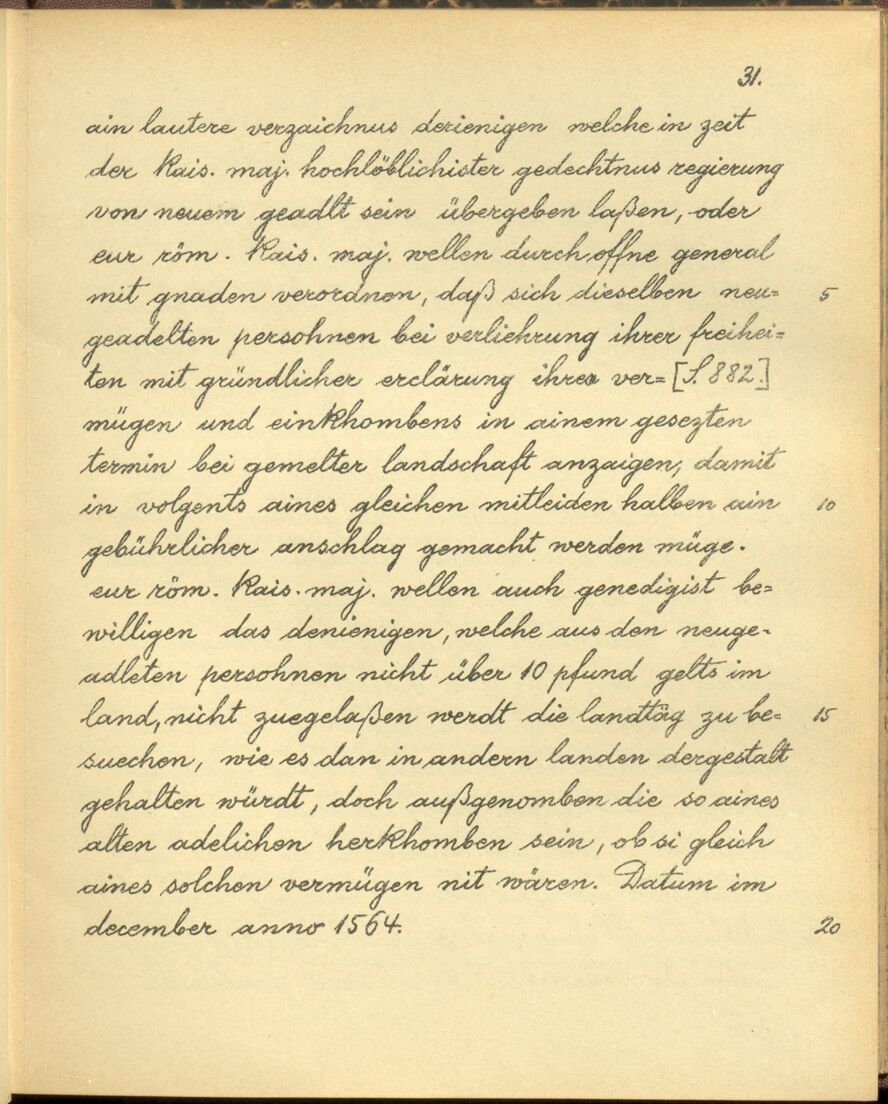 31.
ain lautere verzaichnus derienigen welche in zeit
der kais. maj. hochlöblichister gedechtnus regierung
von neuem geadlt sein übergeben laßen, oder
eur röm. kais. maj. wellen durch offne general
mit gnaden verordnen, daß sich dieselben neu= 5
geadelten persohnen bei verliehrung ihrer freihei=
ten mit gründlicher erclärung ihres ver= [S. 882.]
mügen und einkhombens in ainem gesezten
termin bei gemelter landschaft anzaigen, damit
in volgents aines gleichen mitleiden halben ain 10
gebührlicher anschlag gemacht werden müge.
eur röm. kais. maj. wellen auch genedigist be=
willigen das denienigen, welche aus den neuge=
adleten persohnen nicht über 10 pfund gelts im
land, nicht zuegelaßen werdt die landtäg zu be= 15
suechen, wie es dan in andern landen dergestalt
gehalten würdt, doch außgenomben die so aines
alten adelichen herkhomben sein, ob si gleich
aines solchen vermügen nit wären. Datum im
december anno 1564. 20